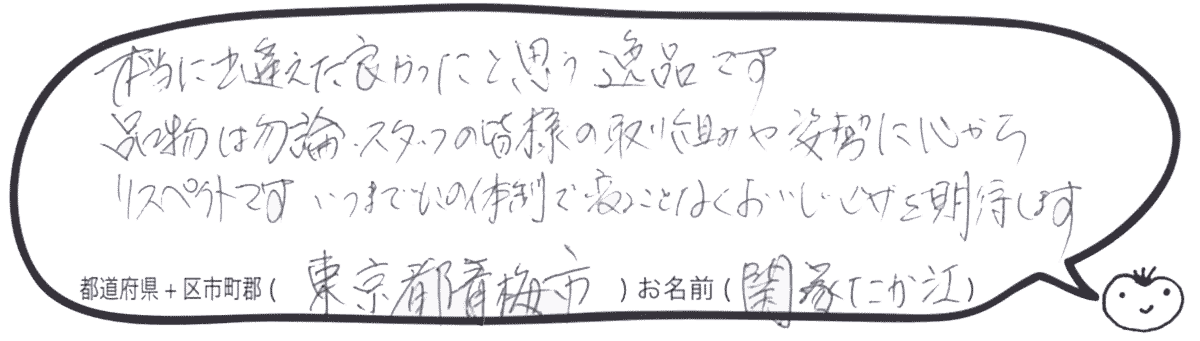 本当に出逢えた良かったこと思う逸品です
品物は勿論、スタッフの皆様の取り組みや姿勢に心から
リスペクトです いつまでもこの体制で変ることなくおいしい を期待します
都道府県+区市町郡(東京都青梅市)お名前(関塚たか江)